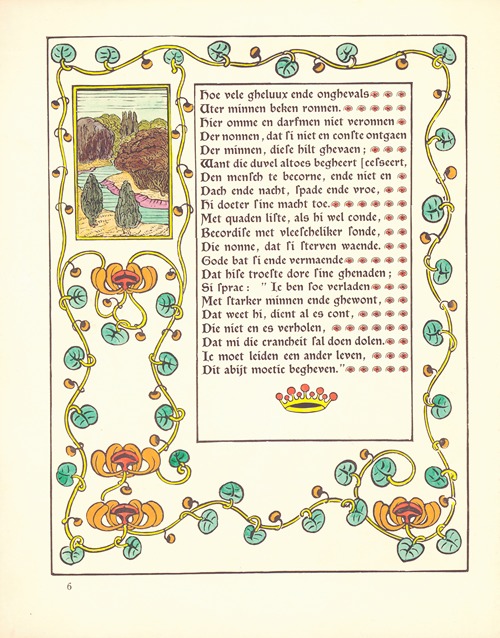 Hoe vele gheluux ende onghevals
Uter minnen beken ronnen.
Hier omme en darfmen niet veronnen
Der nonnen, dat si niet en conste ontgaen
Der minnen, diese hilt ghevaen;
Want die duvel altoes begheert [ceſseert,
Den mensch te becorne, ende niet en
Dach ende nacht, spade ende vroe,
Hi doeter sine macht toe.
Met quaden liste, als hi wel conde,
Becordise met vleescheliker sonde,
Die nonne, dat si sterven waende.
Gode bat si ende vermaende
Dat hise troeste dore sine ghenaden;
Si sprac: " Ic ben soe verladen
Met starker minnen ende ghewont,
Dat weet hi, dient al es cont,
Die niet en es verholen,
Dat mi die crancheit sal doen dolen.
Ic moet leiden een ander leven,
Dit abijt moetic begheven."
6